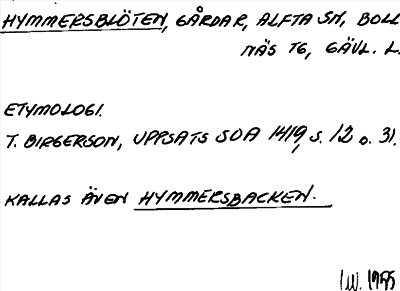 HYMMERSBLÖTEN, GÅRDAR, ALFTA SN, BOLL
NÄS TG, GÄVL. L.
ETYMOLOGI.
T. BIRGERSON, UPPSATS SOA 1419, S. 12 o. 31.
KALLAS ÄVEN HYMMERSBACKEN.
I.W. 1955